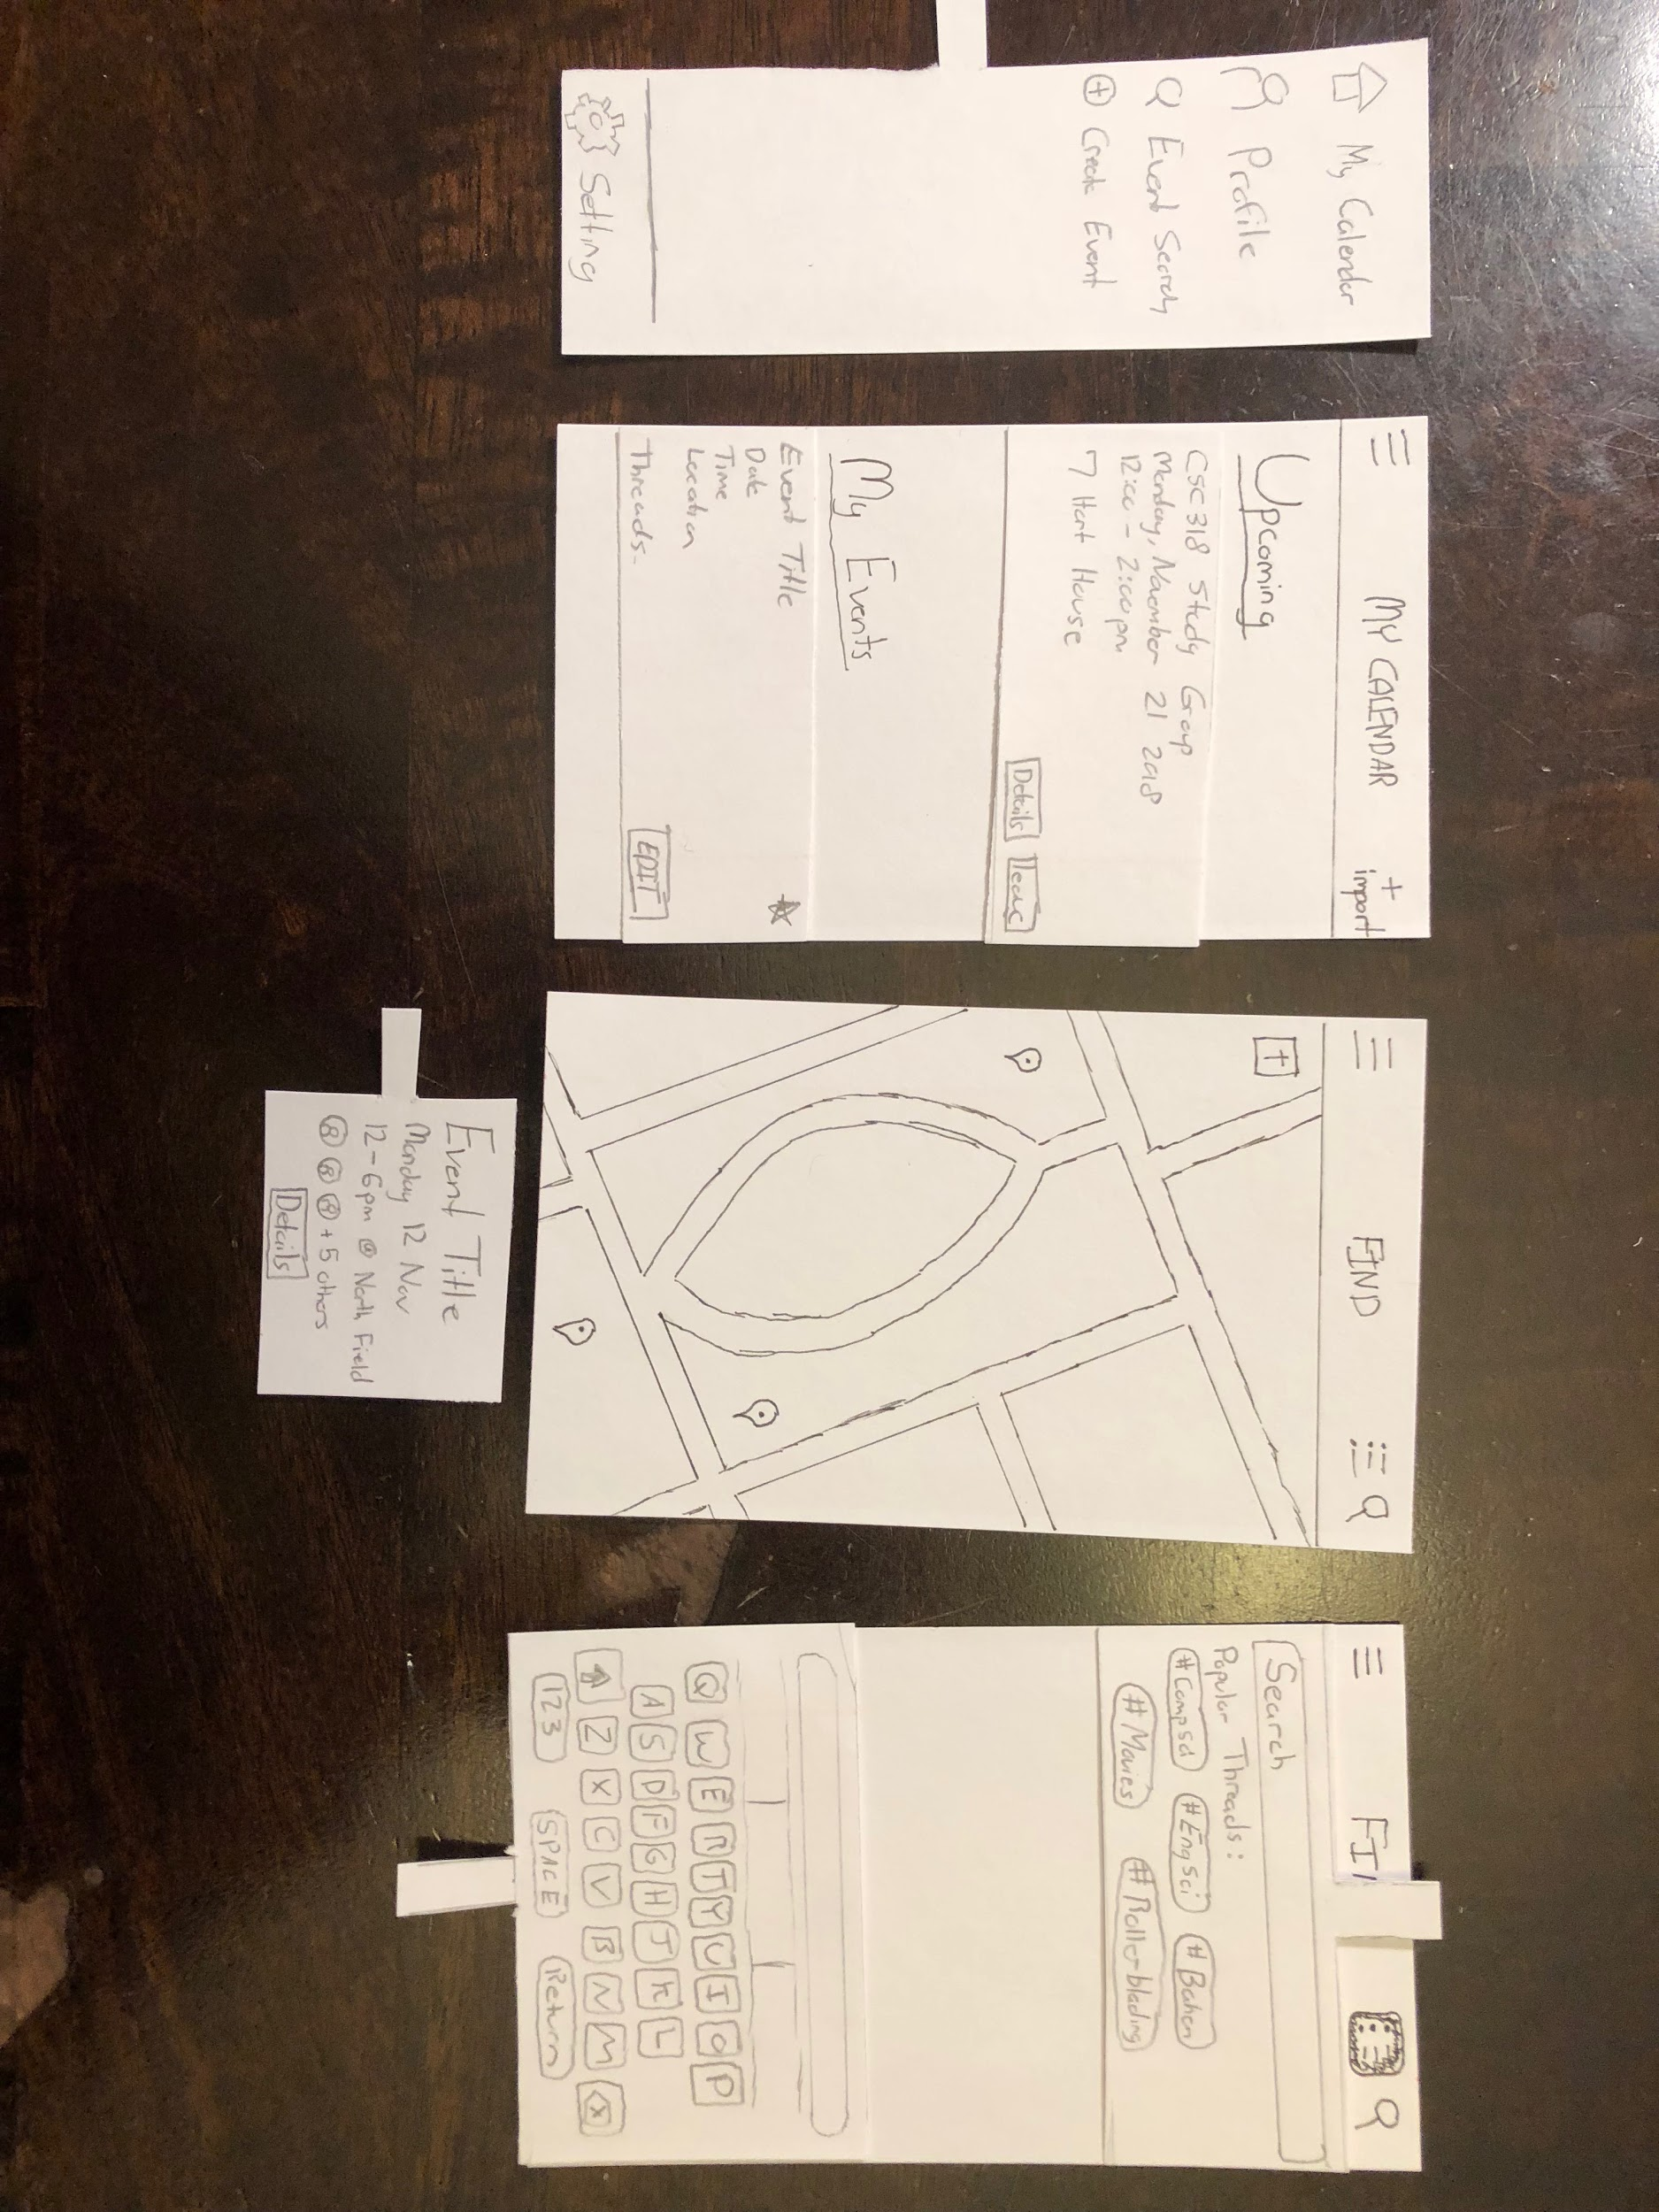 My Calendar
Profile
Event Search
Create Event
Setting
MY CALENDAR
+
import
Upcoming
CSC318 Study Group
Monday, November 21 2018
12:00 - 2:00pm
7 Hart House
Details
My Events
Event Title
Date
Time
Location
Threads-
EDIT
FIND
+
Event Title
Monday 12 Nov
12-6pm @ North Field
+5 others
Details
FI
Search
Popular Threads:
#Compsci #EngSci #Bahen
#Movies #Rollerblading
Q W E R T Y U I O P
A S D F G H J K L
Z X C V B N M X
123 SPACE Return